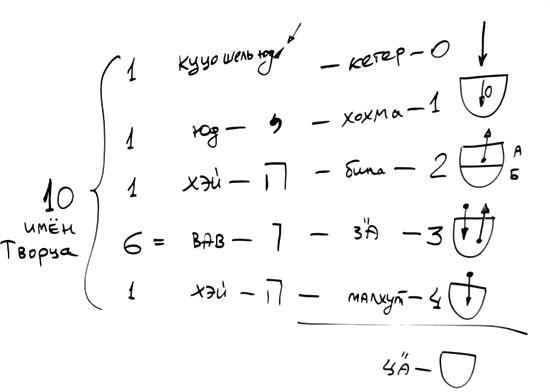 1 куцо шель юд – кетер – 0
0
1 юд – י – хохма – 1
1 хэй – ה – бина – 2
А
Б
10 имён Творца
6 = вав – ו – З"А – 3
1 хэй – ה – малхут – 4
ч"А –